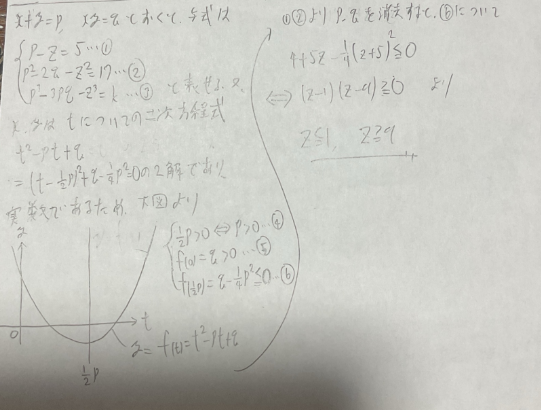 x+y=p, xy=q とおくと、与式は
p-z=5…①
p²-2q-z²=17…②
p³-3pq-z³=k…③ と表せる。又、
x,yは tについての二次方程式
t²-pt+q
=(t-½p)²+q-¼p²=0の2解であり
実数であるため、下図より
½p>0⇔p>0…④
f(0)=q>0…⑤
f(½p)=q-¼p²≦0…⑥
z
t
0
½p
z=f(t)=t²-pt+q
①②より p,qを消去すると、⑥について
4+5z-¼(z+5)²≦0
⇔(z-1)(z-9)≧0 より
z≦1, z≧9